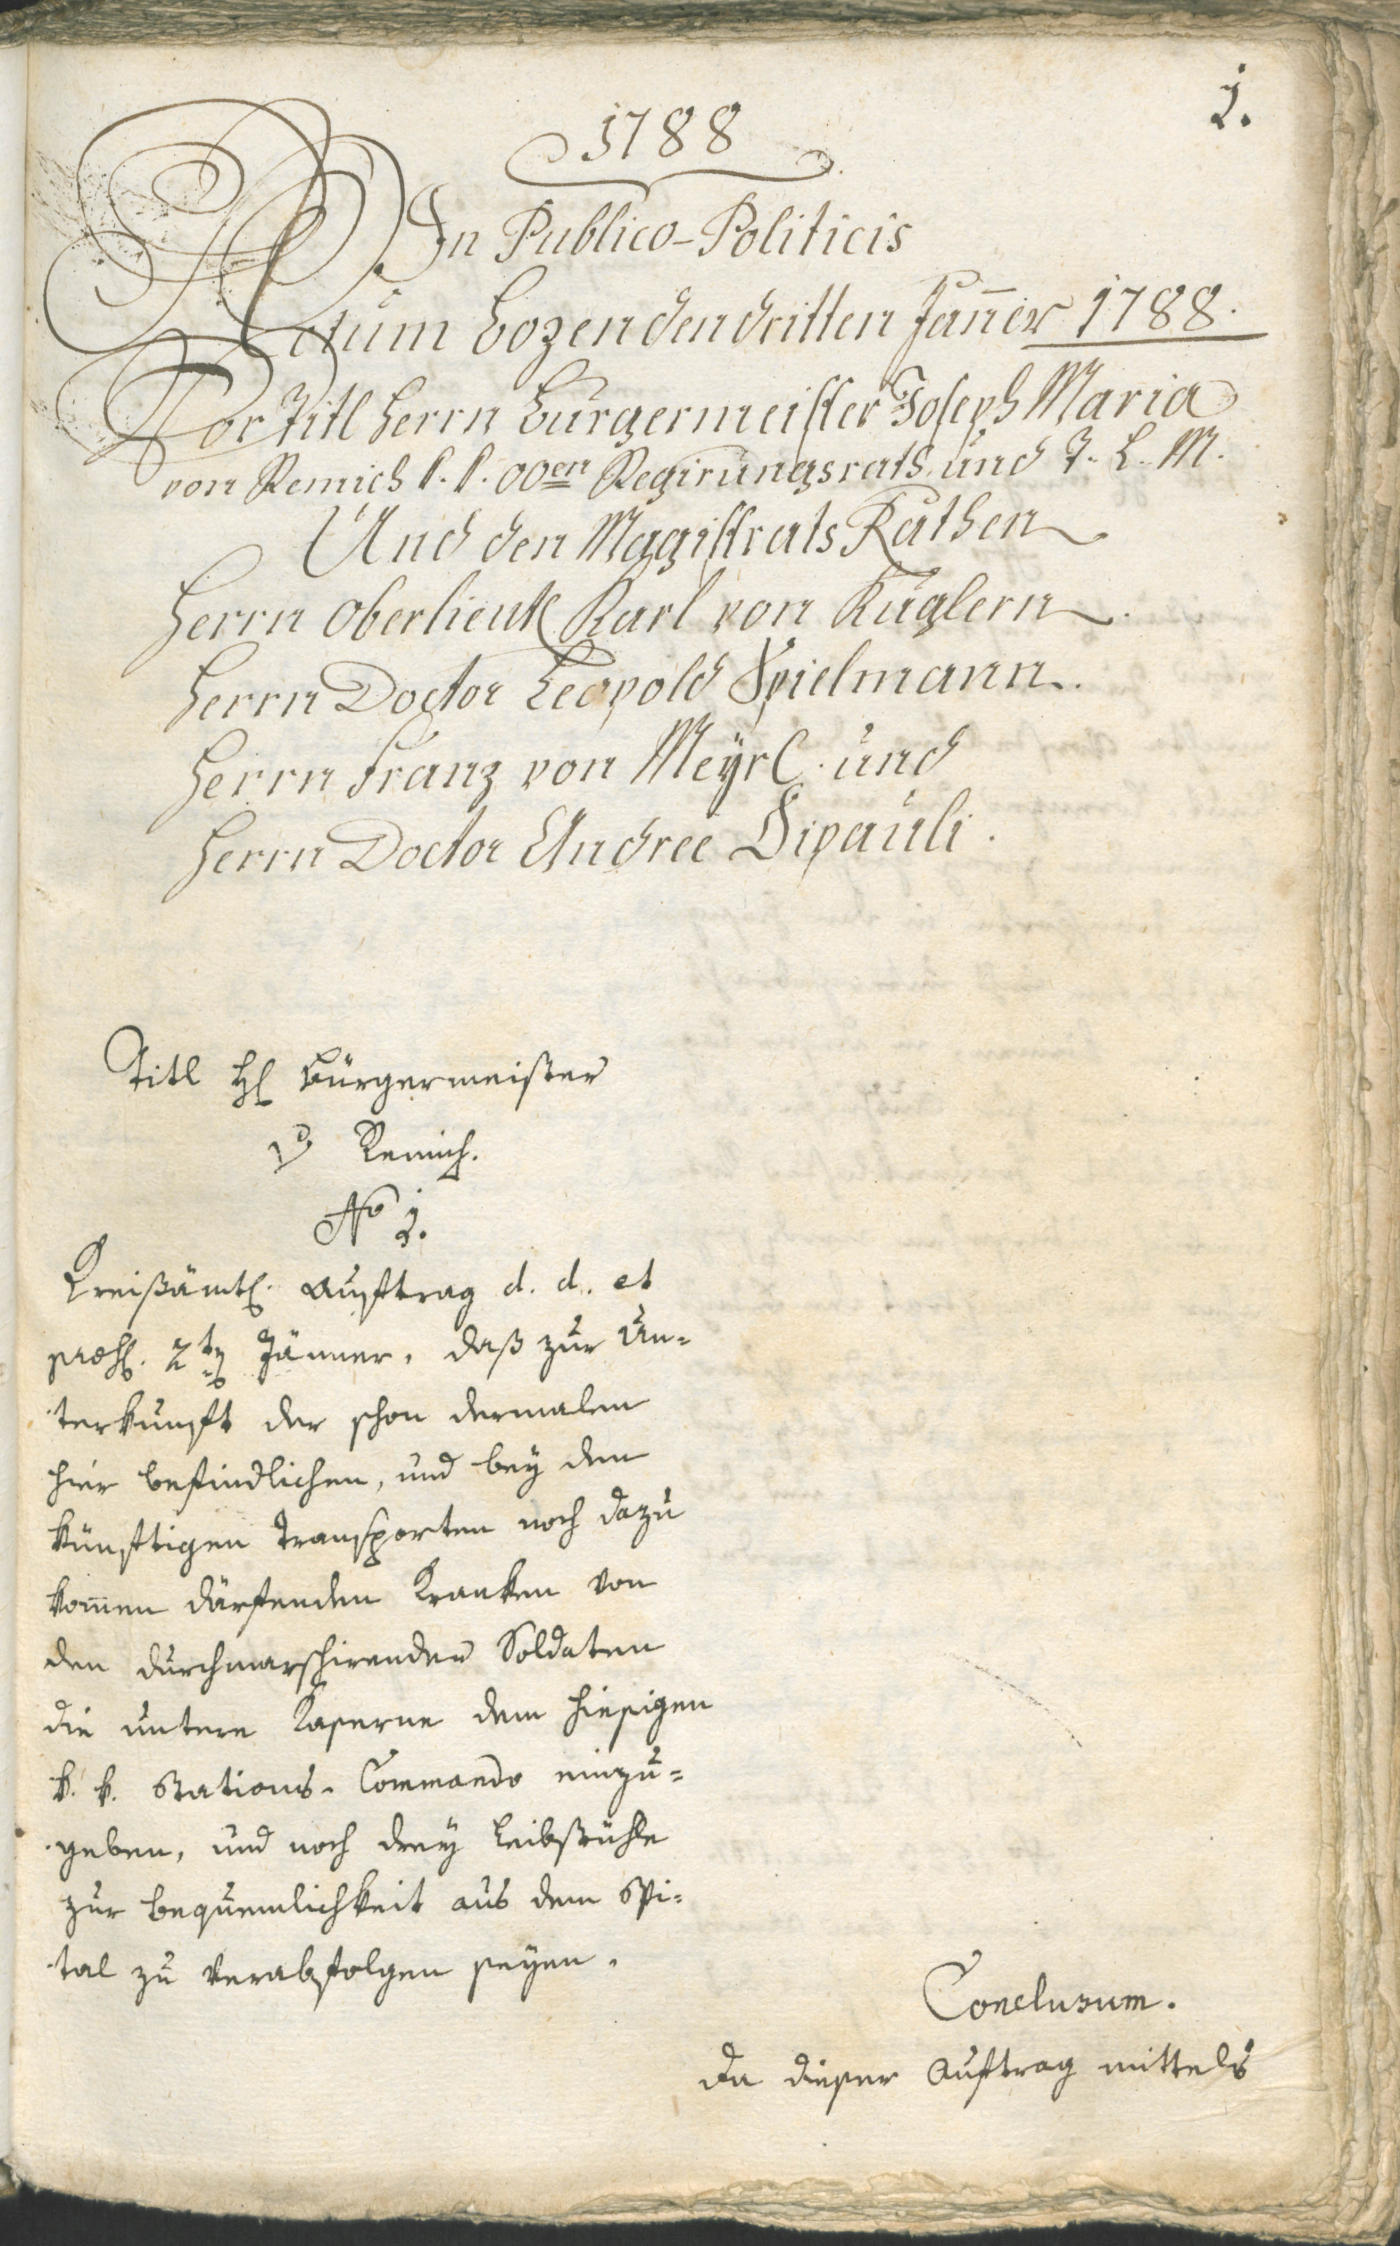 1.
1788
In Publico-Politicis
Actum Bozen den dritten Jañer 1788.
Vor Titl Herrn Bürgermeister Joseph Maria
von Remich P. P. OOen Regirungsrats und T. L. M.
Und den Magistrats Räthen
Herrn Oberlieut Karl von Kuglern.
Herrn Doctor Leopold Spielmann.
Herrn Franz von Meyrl. und
Herrn Doctor Andree Dipauli.
Titl H Bürgermeister
v Remich.
No 1.
Kreißämtl. Auftrag d. d. et
praes. 2ten Jänner, daß zur Un=
terkunft der schon dermalen
hier befindlichen, und bey den
künftigen Transporten noch dazu
kom̄en därfenden Kranken von
den durchmarschirenden Soldaten
die untere Kaserne dem hiesigen
k. k. Stations-Commando einzu=
geben, und noch drey Leibstühle
zur Bequemlichkeit aus dem Spi=
tal zu verabfolgen seyen.
Conclusum.
Da dieser Auftrag mittels